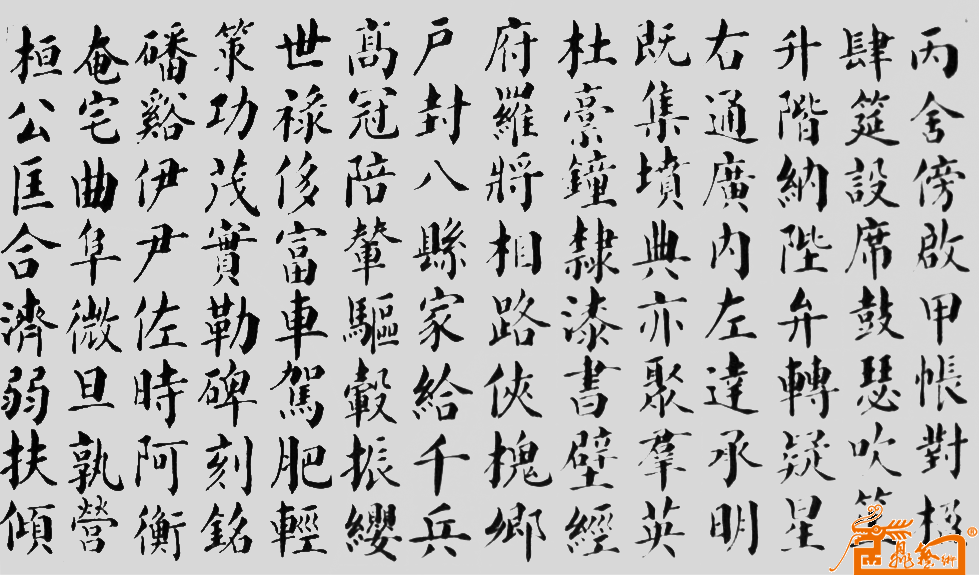 丙舍傍啟甲帳對楹
肆筵設席鼓瑟吹笙
升階納陛弁轉疑星
右通廣內左達承明
既集墳典亦聚羣英
杜稾鐘隸漆書壁經
府羅將相路俠槐鄉
戶封八縣家給千兵
高冠陪輦驅轂振纓
世祿侈富車駕肥輕
策功茂實勒碑刻銘
磻谿伊尹佐時阿衡
奄宅曲阜微旦孰營
桓公匡合濟弱扶傾